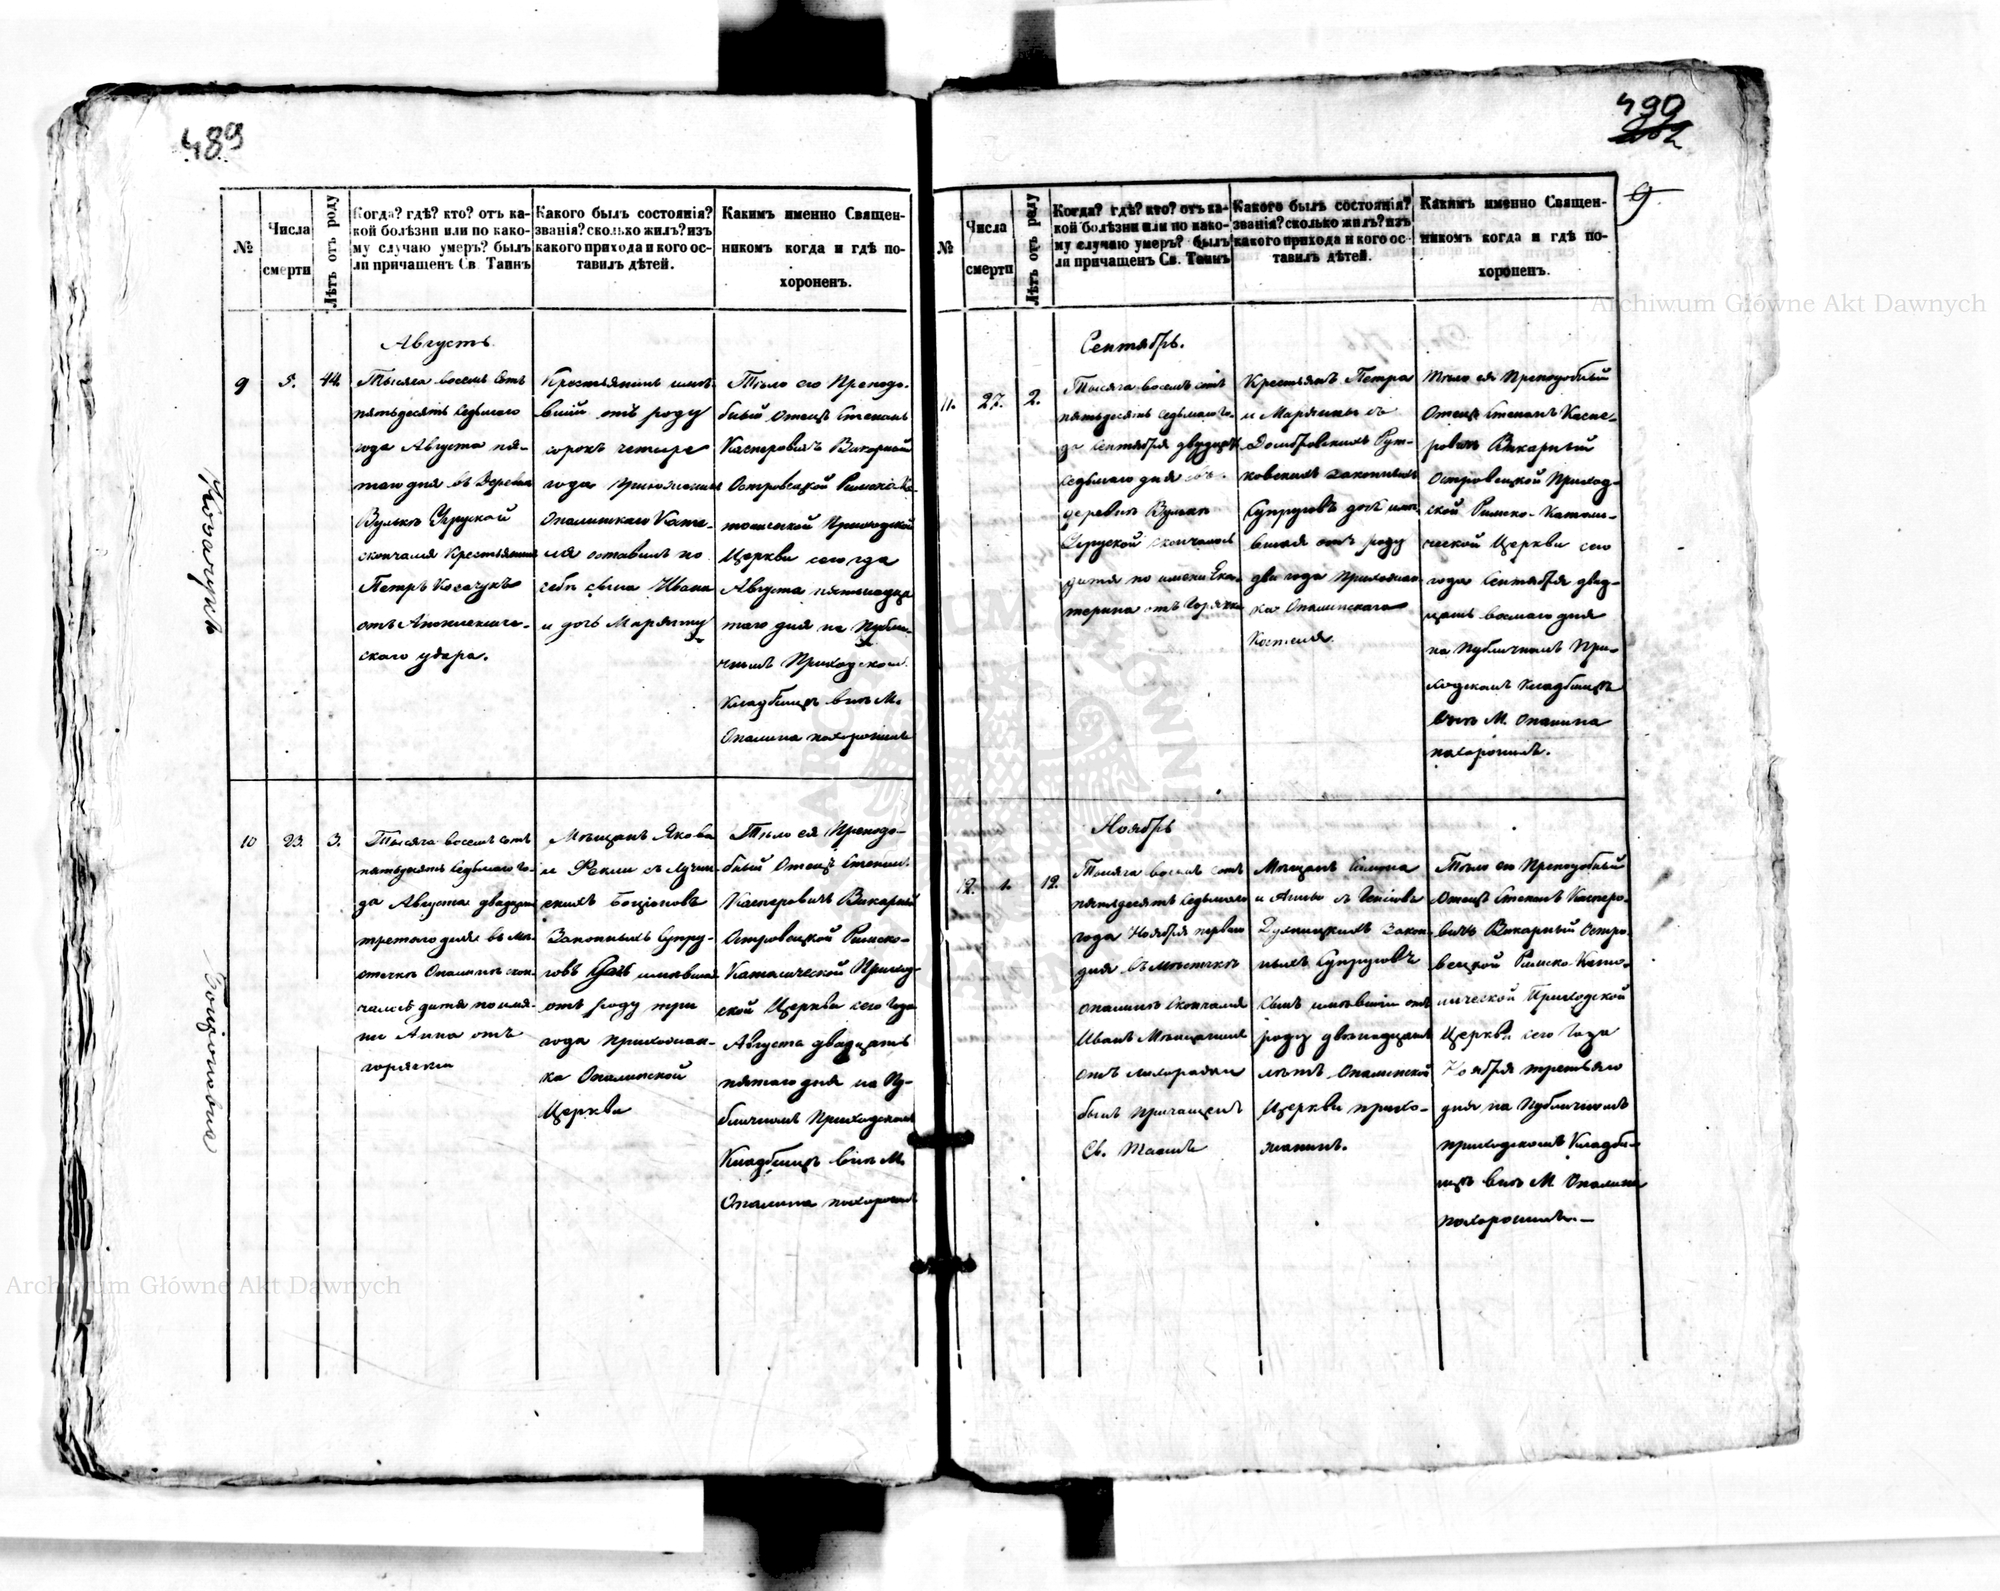 489
№
Числа
смерти
Лѣтъ отъ роду
Когда? гдѣ? кто? отъ ка-
кой болѣзни или по како-
му случаю умеръ? былъ
ли причащенъ Св. Таинъ
Какого былъ состоянія?
званія? сколько жилъ? изъ
какого прихода и кого ос-
тавилъ дѣтей.
Каким именно Священ-
никомъ когда и гдѣ по-
хороненъ.
Августъ.
9
5.
44.
Тысяча восемь сотъ
пятьдесятъ седьмаго
года Августа пя-
таго дня въ деревнѣ
Вулькѣ Угруской
скончался Крестьянинъ
Петръ Козачукъ
отъ Апоплексиче-
скаго удара.
Крестьянинъ имѣ-
вшій отъ роду
сорокъ четыре
года прихожанинъ
Опалинскаго Косте-
ла оставилъ по
себѣ сына Ивана
и дочь Марянну
Тѣло его Преподо-
бный Отецъ Степанъ
Касперовичъ Викарный
Островецкой Римско-Ка-
толической Приходской
Церкви сего года
Августа пятьнадца
таго дня на Публи-
чномъ Приходскомъ
Кладбищѣ внѣ М.
Опалина похоронилъ
Козачукъ
10
23.
3.
Тысяча восемь сотъ
пятьдесятъ седьмаго го-
да Августа двадцать
третаго дня въ мѣ-
стечкѣ Опалинѣ скон-
чалсѣ дитя по имя-
ни Анна отъ
горячки
Мѣщанъ Якова
и Фекли съ Лучин-
скихъ Боціоновъ
Законныхъ Супру-
говъ дочь имѣвшая
отъ роду три
года прихожан-
ка Опалинской
Церкви
Тѣло ея Преподо-
бный Отецъ Степанъ
Касперовичъ Викарный
Островецкой Римско-
Католической Приход-
ской Церкви сего года
Августа двадцать
пятаго дня на Пу-
бличномъ Приходскомъ
Кладбищѣ внѣ М.
Опалина похоронилъ
490
9
№
Числа
смерти
Лѣтъ отъ роду
Когда? гдѣ? кто? отъ ка-
кой болѣзни или по како-
му случаю умеръ? былъ
ли причащенъ Св. Таинъ
Какого былъ состоянія?
званія? сколько жилъ? изъ
какого прихода и кого ос-
тавилъ дѣтей.
Какимъ именно Священ-
никомъ когда и гдѣ по-
хороненъ.
Сентябрь.
11.
27.
2.
Тысяча восемь сотъ
пятьдесятъ седьмаго го-
да Сентября двадцать
седьмаго дня въ
деревнѣ Вулькѣ
Угруской скончалось
дитя по имени Ека-
терина отъ горячки
Крестьянъ Петра
и Марянны съ
Домбровскихъ Рут-
ковскихъ законныхъ
Супруговъ дочь имѣ-
вшая отъ роду
два года Прихожан-
ка Опалинскаго
Костела.
Тѣло ея Преподобный
Отецъ Степанъ Каспе-
ровичъ Викарный
Островецкой Приход-
ской Римско-Католи-
ческой Церкви сего
года Сентября двад-
цать осьмаго дня
на Публичномъ При-
ходскомъ Кладбищѣ
внѣ М. Опалина
похоронилъ.
Ноябрь
12.
1.
12.
Тысяча восемь сотъ
пятьдесятъ седьмаго
года Ноября перваго
дня въ мѣстечкѣ
Опалинѣ скончался
Иванъ Мѣщанинъ
отъ лихорадки
былъ причащенъ
Св. Таинъ
Мѣщанъ
и Анны съ
законныхъ Супруговъ
Сынъ имѣвшій отъ
роду двѣнадцать
лѣтъ Опалинской
Церкви прихо-
жанинъ.
Тѣло его Преподобный
Отецъ Степанъ Касперо-
вичъ Викарный Остро-
вецкой Римско-Като-
лической Приходской
Церкви сего года
Ноября третьяго
дня на Публичномъ
приходскомъ Кладби-
щѣ внѣ М. Опалина
похоронилъ.—
Archiwum Główne Akt Dawnych
Archiwum Główne Akt Dawnych